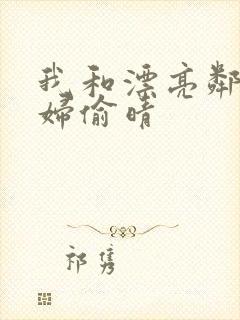 我和漂亮鄰
婦偷晴
祁隽